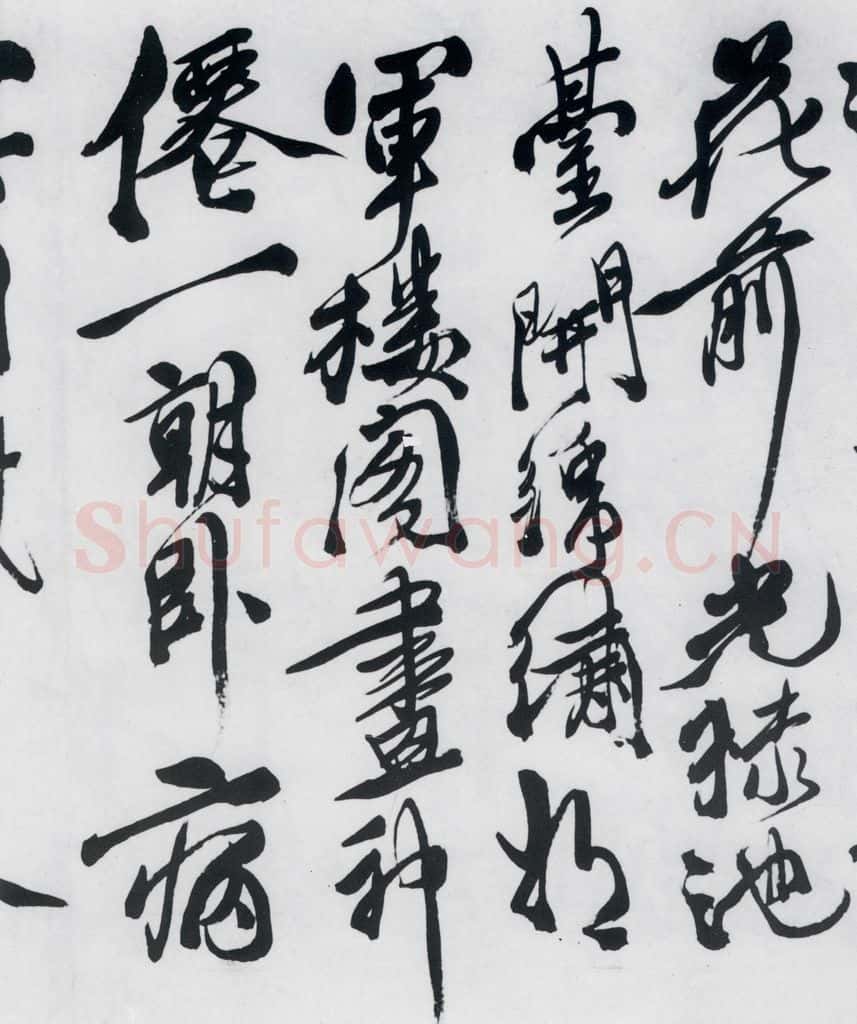 花前光禄池
臺開錦繡将
軍楼阁畫神
僊一朝卧病
Shufawang.CN